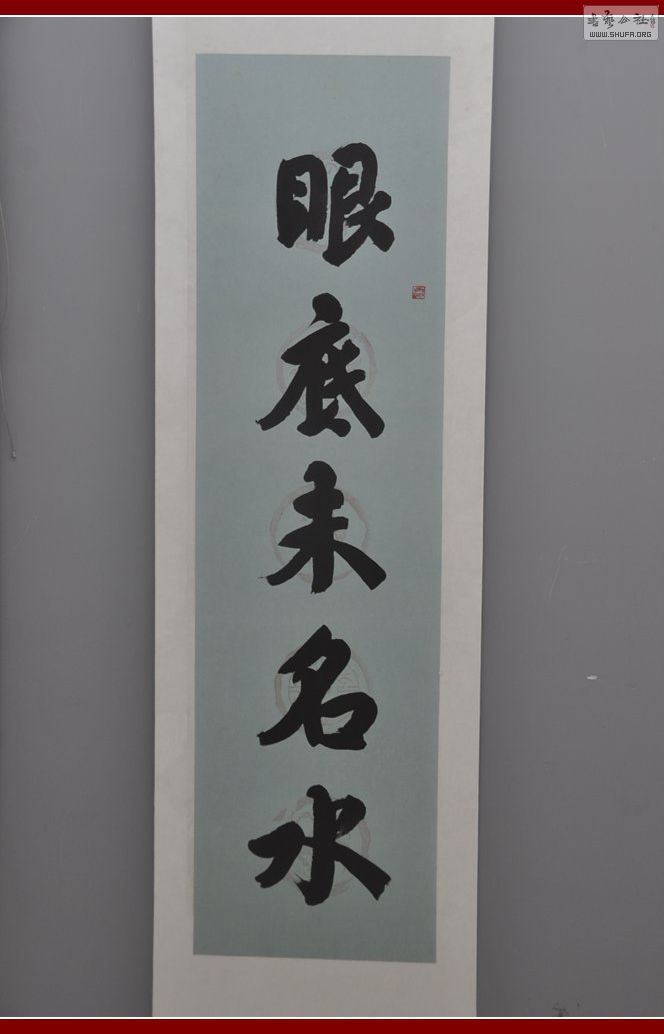 眼底未名水
書藝公社
WWW.SHUFA.ORG